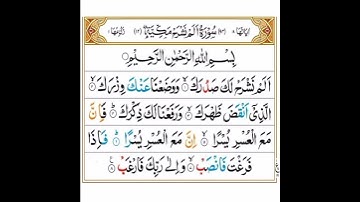 سُوْرَةُ اَلَمْ نَشْرَحْ مَكِّيَّةٌ
بِسْمِ اللّٰهِ الرَّحْمٰنِ الرَّحِيْمِ
اَلَمْ نَشْرَحْ لَكَ صَدْرَكَ ۙ﴿۱﴾ وَوَضَعْنَا عَنْكَ وِزْرَكَ ۙ﴿۲﴾
الَّذِيْۤ اَنْقَضَ ظَهْرَكَ ۙ﴿۳﴾ وَرَفَعْنَا لَكَ ذِكْرَكَ ؕ﴿۴﴾ فَاِنَّ
مَعَ الْعُسْرِ يُسْرًا ۙ﴿۵﴾ اِنَّ مَعَ الْعُسْرِ يُسْرًا ؕ﴿۶﴾ فَاِذَا
فَرَغْتَ فَانْصَبْ ۙ﴿۷﴾ وَاِلٰى رَبِّكَ فَارْغَبْ ﴿۸﴾